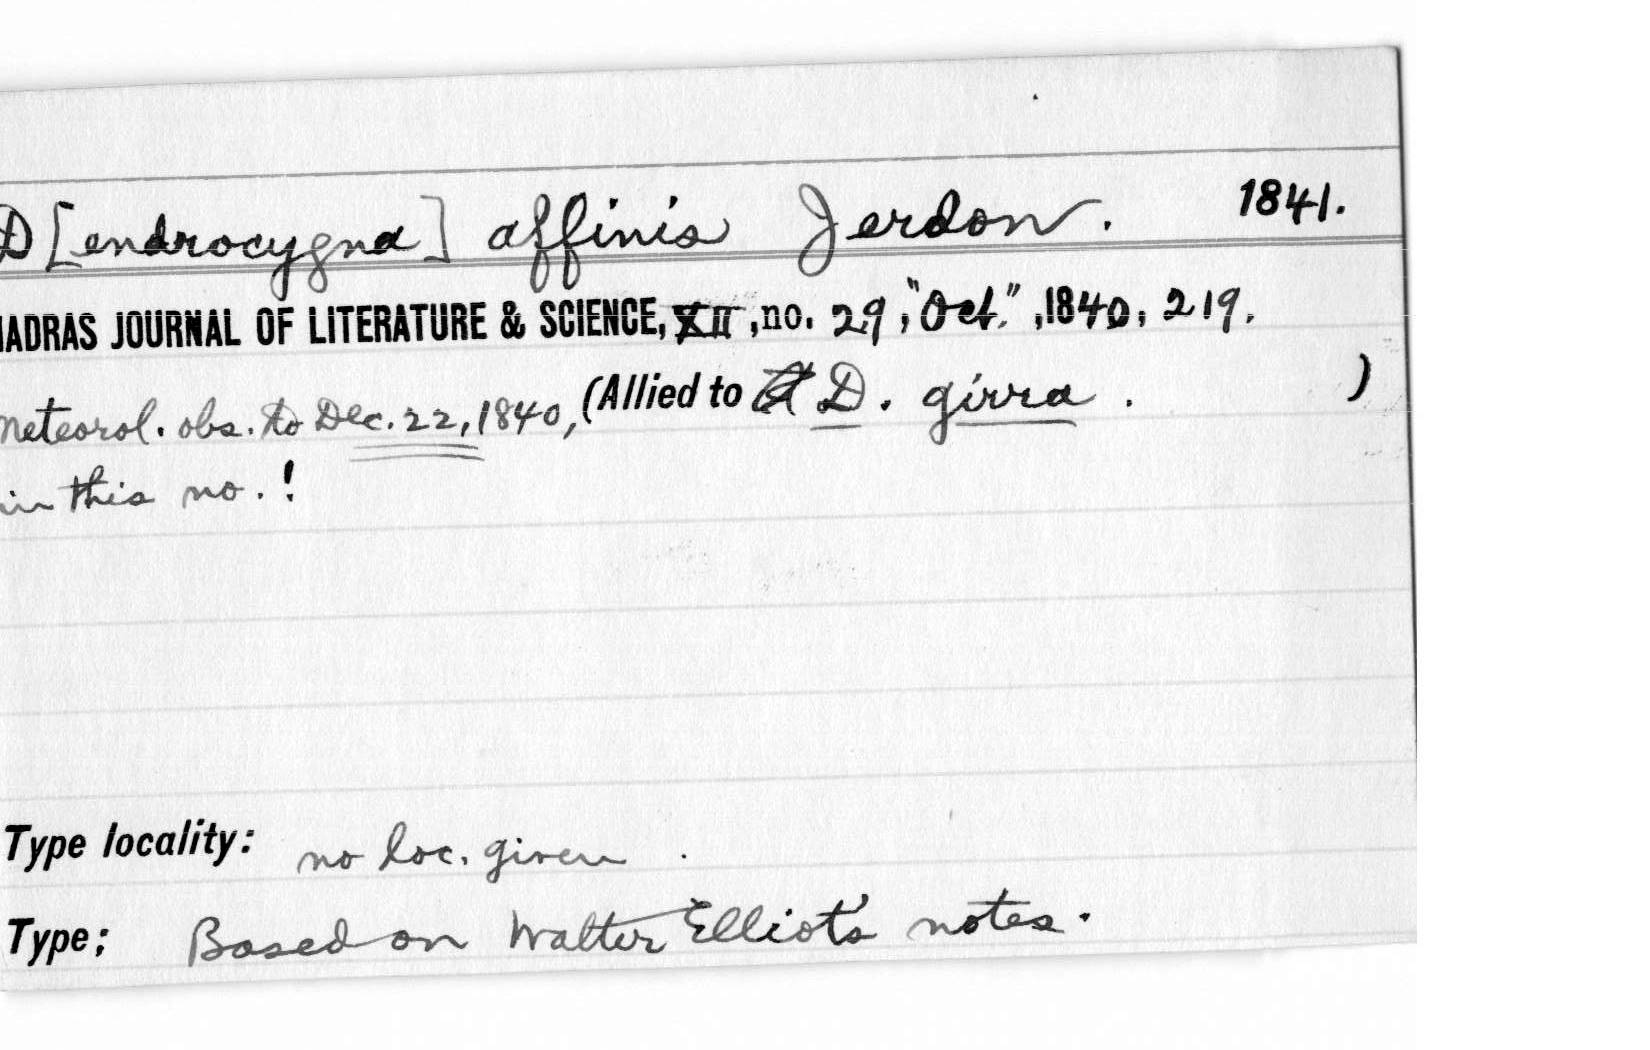 D[endrocygna] affinis Jerdon. 1841.
MADRAS JOURNAL OF LITERATURE & SCIENCE, XII, no. 29, "Oct.", 1840, 219.
Meteorol. obs. to Dec. 22, 1840, (Allied to D. girra. )
in this no.!
Type locality: no loc. given.
Type: Based on Walter Elliot's notes.